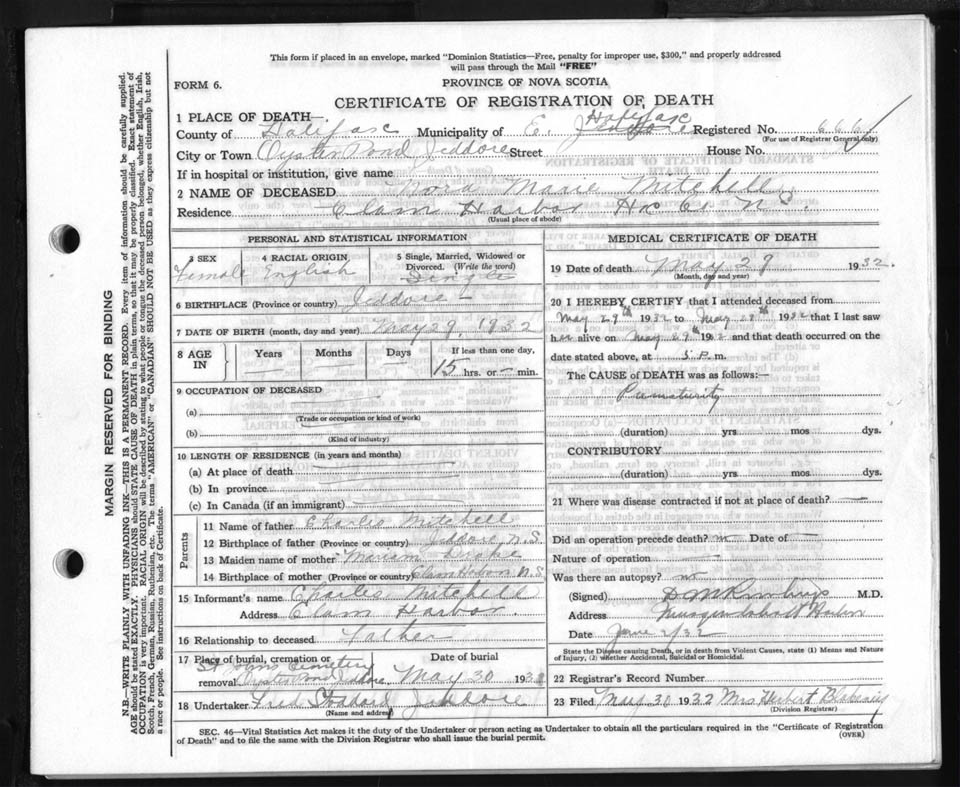 This form if placed in an envelope, marked "Dominion Statistics—Free, penalty for improper use, $300," and properly addressed
will pass through the Mail "FREE"
FORM 6.
PROVINCE OF NOVA SCOTIA
CERTIFICATE OF REGISTRATION OF DEATH
1 PLACE OF DEATH—
Halifax
County of Halifax Municipality of E. Registered No. 666
(For use of Registrar General only)
City or Town Oyster Pond Jeddore Street House No.
If in hospital or institution, give name
2 NAME OF DECEASED Nora Marie Mitchell
Residence Clam Harbor Hx Co. N.S.
(Usual place of abode)
PERSONAL AND STATISTICAL INFORMATION
3 SEX 4 RACIAL ORIGIN 5 Single, Married, Widowed or
Divorced. (Write the word)
Female English Single
6 BIRTHPLACE (Province or country) Jeddore
7 DATE OF BIRTH (month, day and year) May 29, 1932
8 AGE IN Years Months Days If less than one day,
15 hrs. or — min.
9 OCCUPATION OF DECEASED
(a)
(Trade or occupation or kind of work)
(b)
(Kind of industry)
10 LENGTH OF RESIDENCE (in years and months)
(a) At place of death
(b) In province
(c) In Canada (if an immigrant)
Parents
11 Name of father Charles Mitchell
12 Birthplace of father (Province or country) Jeddore N.S.
13 Maiden name of mother Miriam Drake
14 Birthplace of mother (Province or country) Clam Harbor N.S
15 Informant's name Charles Mitchell
Address Clam Harbor.
16 Relationship to deceased Father
17 Place of burial, cremation or removal Date of burial
St Johns Cemetery
Oyster Pond Jeddore May 30 1932
18 Undertaker Fred Jeddore
(Name and address)
MEDICAL CERTIFICATE OF DEATH
19 Date of death May 29 1932.
(Month, day and year)
20 I HEREBY CERTIFY that I attended deceased from
May 29th 1932 to May 29th 1932 that I last saw
her alive on May 29th 1932 and that death occurred on the
date stated above, at 5 P. m.
The CAUSE of DEATH was as follows:—
Prematurity
(duration) yrs mos dys.
CONTRIBUTORY
(duration) yrs. mos dys.
21 Where was disease contracted if not at place of death? —
Did an operation precede death? no Date of —
Nature of operation —
Was there an autopsy? no
(Signed) M.D.
Address Musquodoboit Harbor
Date June 2/32
State the Disease causing Death, or in death from Violent Causes, state (1) Means and Nature
of Injury, (2) whether Accidental, Suicidal or Homicidal.
22 Registrar's Record Number
23 Filed May 30 1932 Mrs Herbert
(Division Registrar)
SEC. 46—Vital Statistics Act makes it the duty of the Undertaker or person acting as Undertaker to obtain all the particulars required in the "Certificate of Registration
of Death" and to file the same with the Division Registrar who shall issue the burial permit.
(OVER)
MARGIN RESERVED FOR BINDING
N.B.—WRITE PLAINLY WITH UNFADING INK—THIS IS A PERMANENT RECORD. Every item of information should be carefully supplied.
AGE should be stated EXACTLY. PHYSICIANS should STATE CAUSE OF DEATH in plain terms, so that it may be properly classified. Exact statement of
OCCUPATION is very important. RACIAL ORIGIN will be described by stating to what people or tongue the deceased person belonged, whether English, Irish,
Scotch, French, German, Russian, Ruthenian, etc. The terms "AMERICAN" or "CANADIAN" SHOULD NOT BE USED as they express citizenship but not
a race or people. See instructions on back of Certificate.